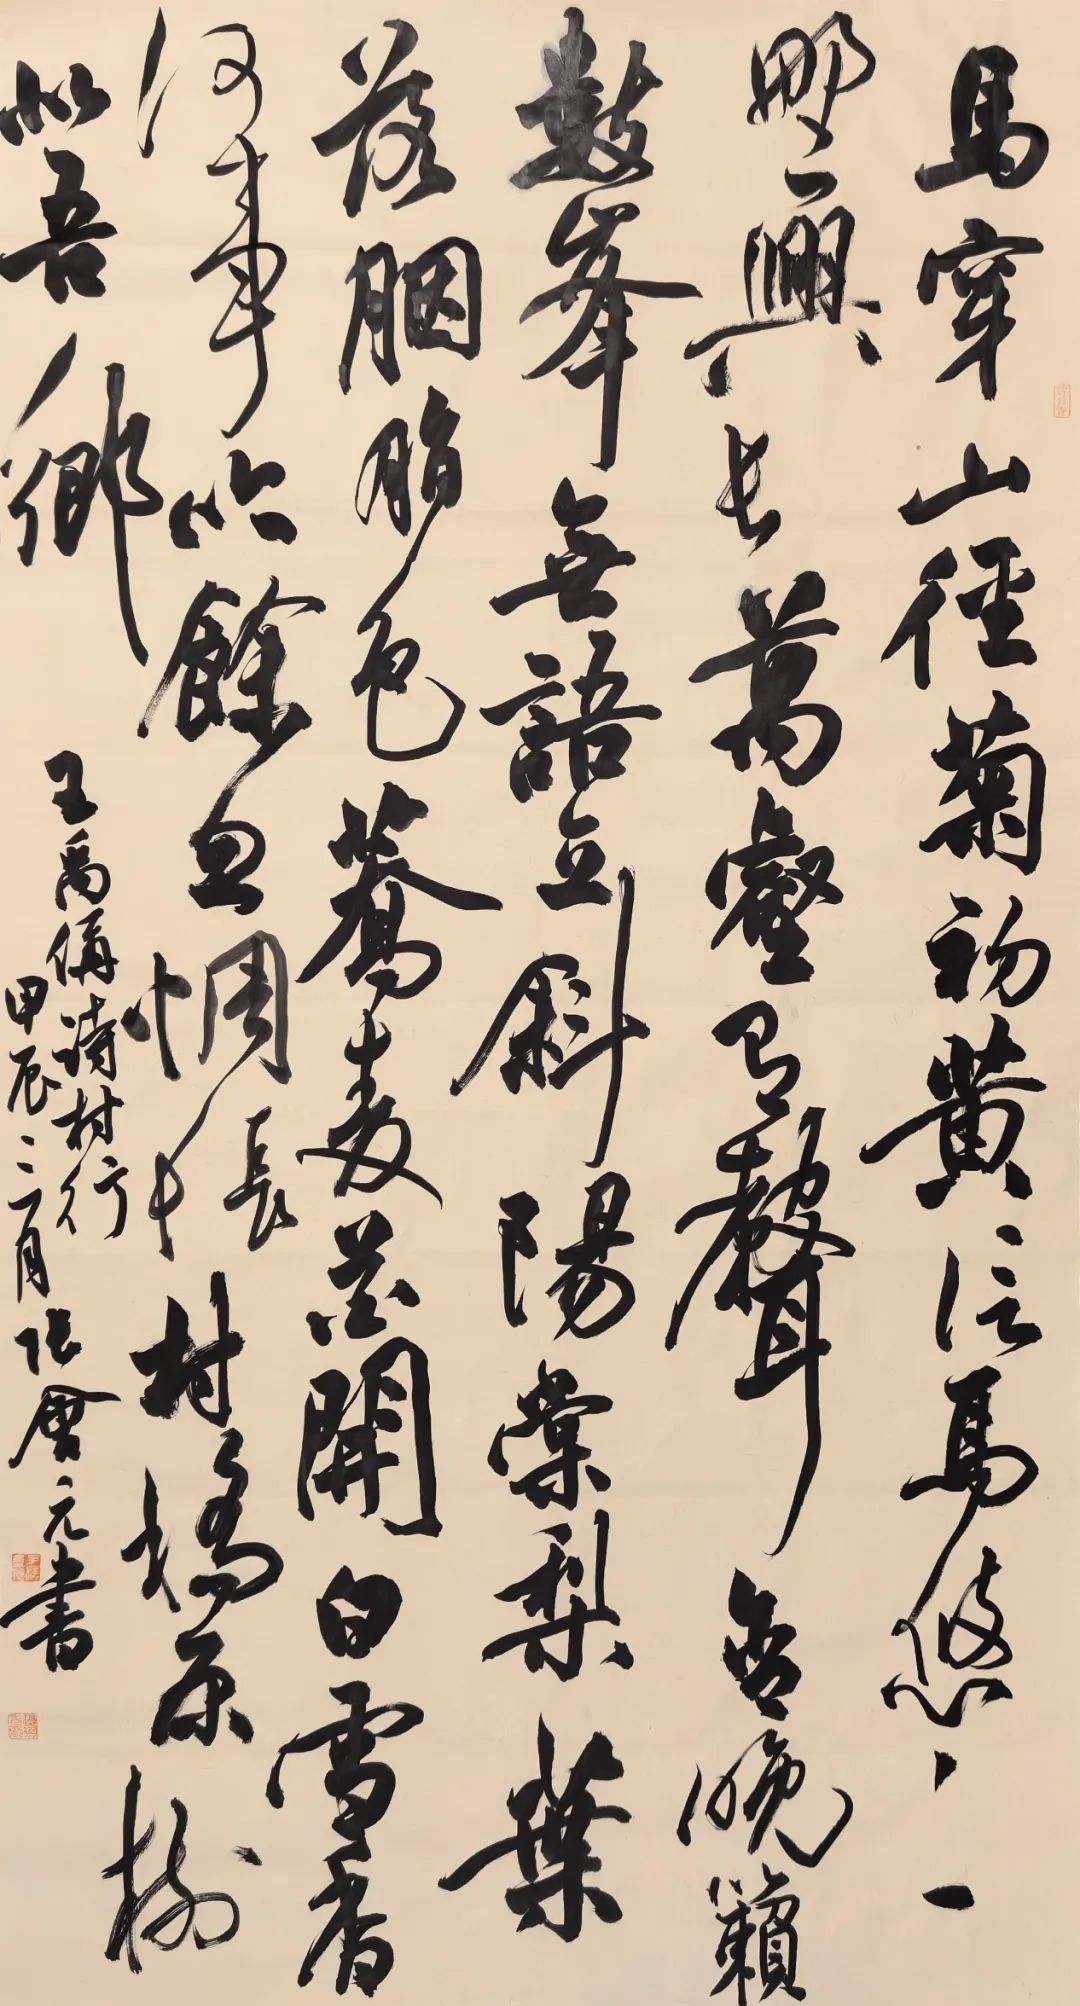 馬穿山徑菊初黄信馬悠〻
野興長萬壑有聲含晚籟
數峯無語立斜陽棠梨葉
落胭脂色蕎麥花開白雪香
何事吟餘忽惆悵村橋原樹
似吾鄉
王禹偁詩村行
甲辰二月張會元書